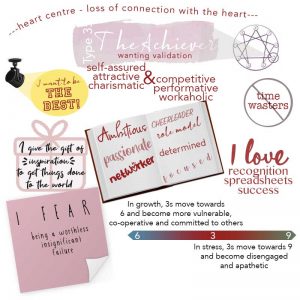 ---heart centre - loss of connection with the heart---
Type 3
The Achiever
wanting validation
self-assured
attractive
charismatic
&
competitive
performative
workaholic
I want to be
THE
BEST!
time
wasters
I give the gift of
inspiration
to get things done
to the world
Ambitious
passionate
networker
CHEERLEADER
role model
determined
focused
I love
recognition
spreadsheets
success
I FEAR
being a worthless
insignificant
failure
In growth, 3s move towards
6 and become more vulnerable,
co-operative and committed to others
6 3 9
In stress, 3s move towards 9
and become disengaged
and apathetic